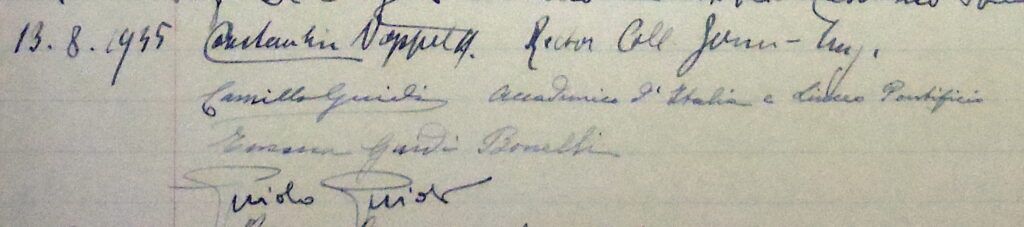 13.8.1935 Constantin Noppel SJ. Rector Coll Germ-Hung.
Camillo Guidi Accademico d'Italia e Linceo Pontificio
Emma Guidi Bonelli
Guido Guidi